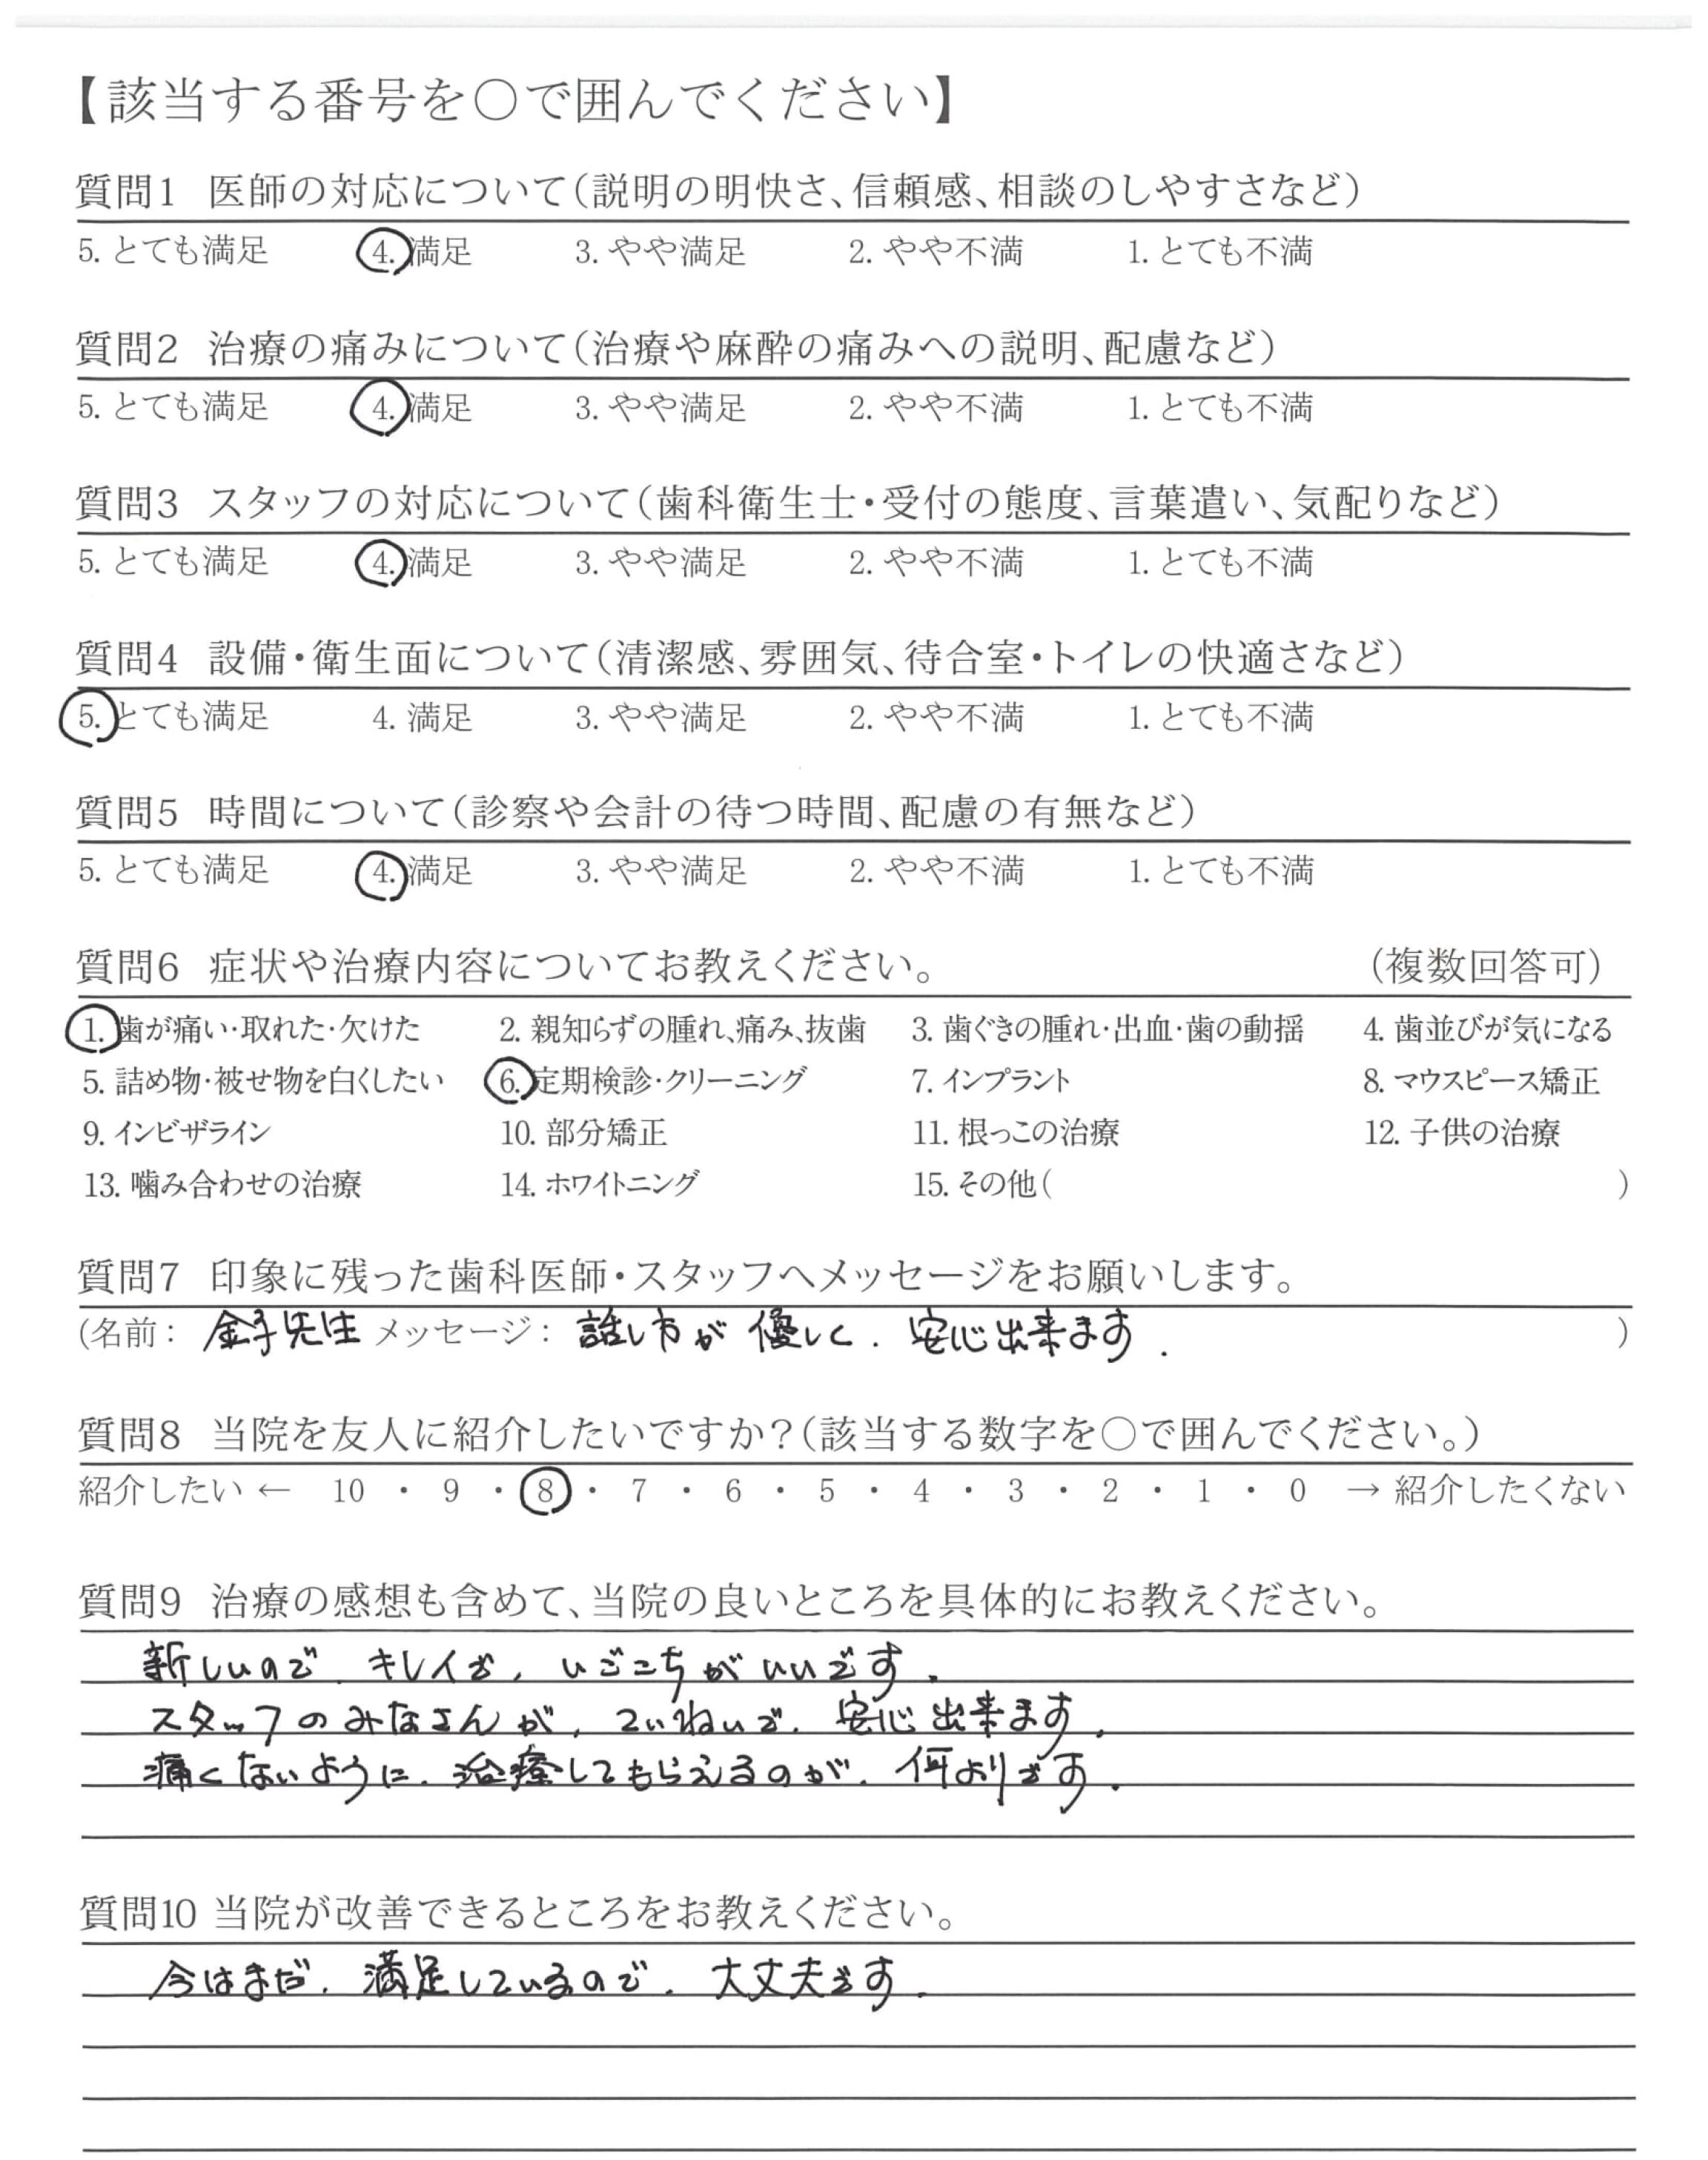 【該当する番号を〇で囲んでください】
質問1 医師の対応について(説明の明快さ、信頼感、相談のしやすさなど)
5. とても満足 4. 満足 3. やや満足 2. やや不満 1. とても不満
質問2 治療の痛みについて(治療や麻酔の痛みへの説明、配慮など)
5. とても満足 4. 満足 3. やや満足 2. やや不満 1. とても不満
質問3 スタッフの対応について(歯科衛生士・受付の態度、言葉遣い、気配りなど)
5. とても満足 4. 満足 3. やや満足 2. やや不満 1. とても不満
質問4 設備・衛生面について(清潔感、雰囲気、待合室・トイレの快適さなど)
5. とても満足 4. 満足 3. やや満足 2. やや不満 1. とても不満
質問5 時間について(診察や会計の待つ時間、配慮の有無など)
5. とても満足 4. 満足 3. やや満足 2. やや不満 1. とても不満
質問6 症状や治療内容についてお教えください。 (複数回答可)
1. 歯が痛い・取れた・欠けた 2. 親知らずの腫れ、痛み、抜歯 3. 歯ぐきの腫れ・出血・歯の動揺 4. 歯並びが気になる
5. 詰め物・被せ物を白くしたい 6. 定期検診・クリーニング 7. インプラント 8. マウスピース矯正
9. インビザライン 10. 部分矯正 11. 根っこの治療 12. 子供の治療
13. 噛み合わせの治療 14. ホワイトニング 15. その他( )
質問7 印象に残った歯科医師・スタッフへメッセージをお願いします。
(名前: 金子先生 メッセージ: 話し方が優しく. 安心出来ます. )
質問8 当院を友人に紹介したいですか?(該当する数字を〇で囲んでください。)
紹介したい ← 10 ・ 9 ・ 8 ・ 7 ・ 6 ・ 5 ・ 4 ・ 3 ・ 2 ・ 1 ・ 0 → 紹介したくない
質問9 治療の感想も含めて、当院の良いところを具体的にお教えください。
新しいので、キレイで、いごこちがいいです.
スタッフのみなさんが、ていねいで、安心出来ます.
痛くないように、治療してもらえるのが、何よりです.
質問10 当院が改善できるところをお教えください。
今はまだ、満足しているので、大丈夫です.